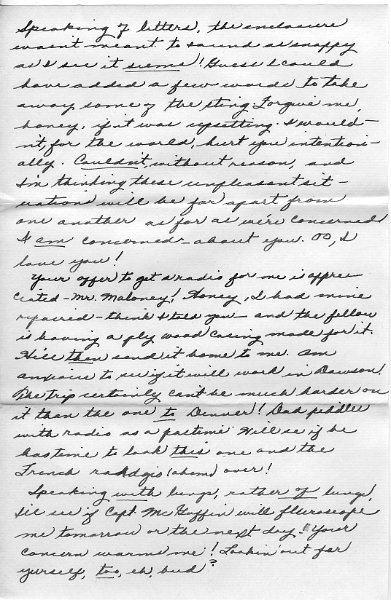 Speaking of letters, the enclosure
wasn't meant to sound as snappy
as I see it seems! Guess I could
have added a few words to take
away some of the sting. Forgive me,
honey, if it was upsetting. I would-
n't, for the world, hurt you intention-
ally. Couldn't, without reason, and
I'm thinking these unpleasant sit-
uations will be far apart from
one another as far as we're concerned
I am concerned - about you. OO, I
love you!
Your offer to get a radio for me is appre-
ciated - Mr. Maloney! Honey, I had mine
repaired - think I told you - and the fellow
is having a ply wood casing made for it.
He'll then send it home to me. Am
anxious to see if it will work in Dawson!
The trip certainly can't be much harder on
it than the one to Denver! Dad peddles
with radio as a pastime. Will see if he
has time to look this one and the
French (ahem) over!
Speaking with lungs, rather of lungs,
I'll see if Capt. McGuffin will fluroscope
me tomorrow or the next day!! Your
concern warms me! Lookin' out for
yurself, too, eh, bud?